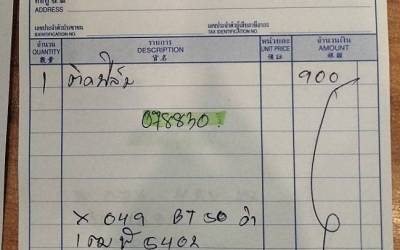 ADDRESS
เลขประจำตัวประชาชน เลขประจำตัวผู้เสียภาษีอากร
IDENTIFICATION NO. TAX IDENTIFICATION NO.
จำนวน รายการ หน่วยละ จำนวนเงิน
QUANTITY DESCRIPTION UNIT PRICE AMOUNT
數量 貨名
1 ติดฟิล์ม 900
078830
X 049 BT50 ดำ
5402